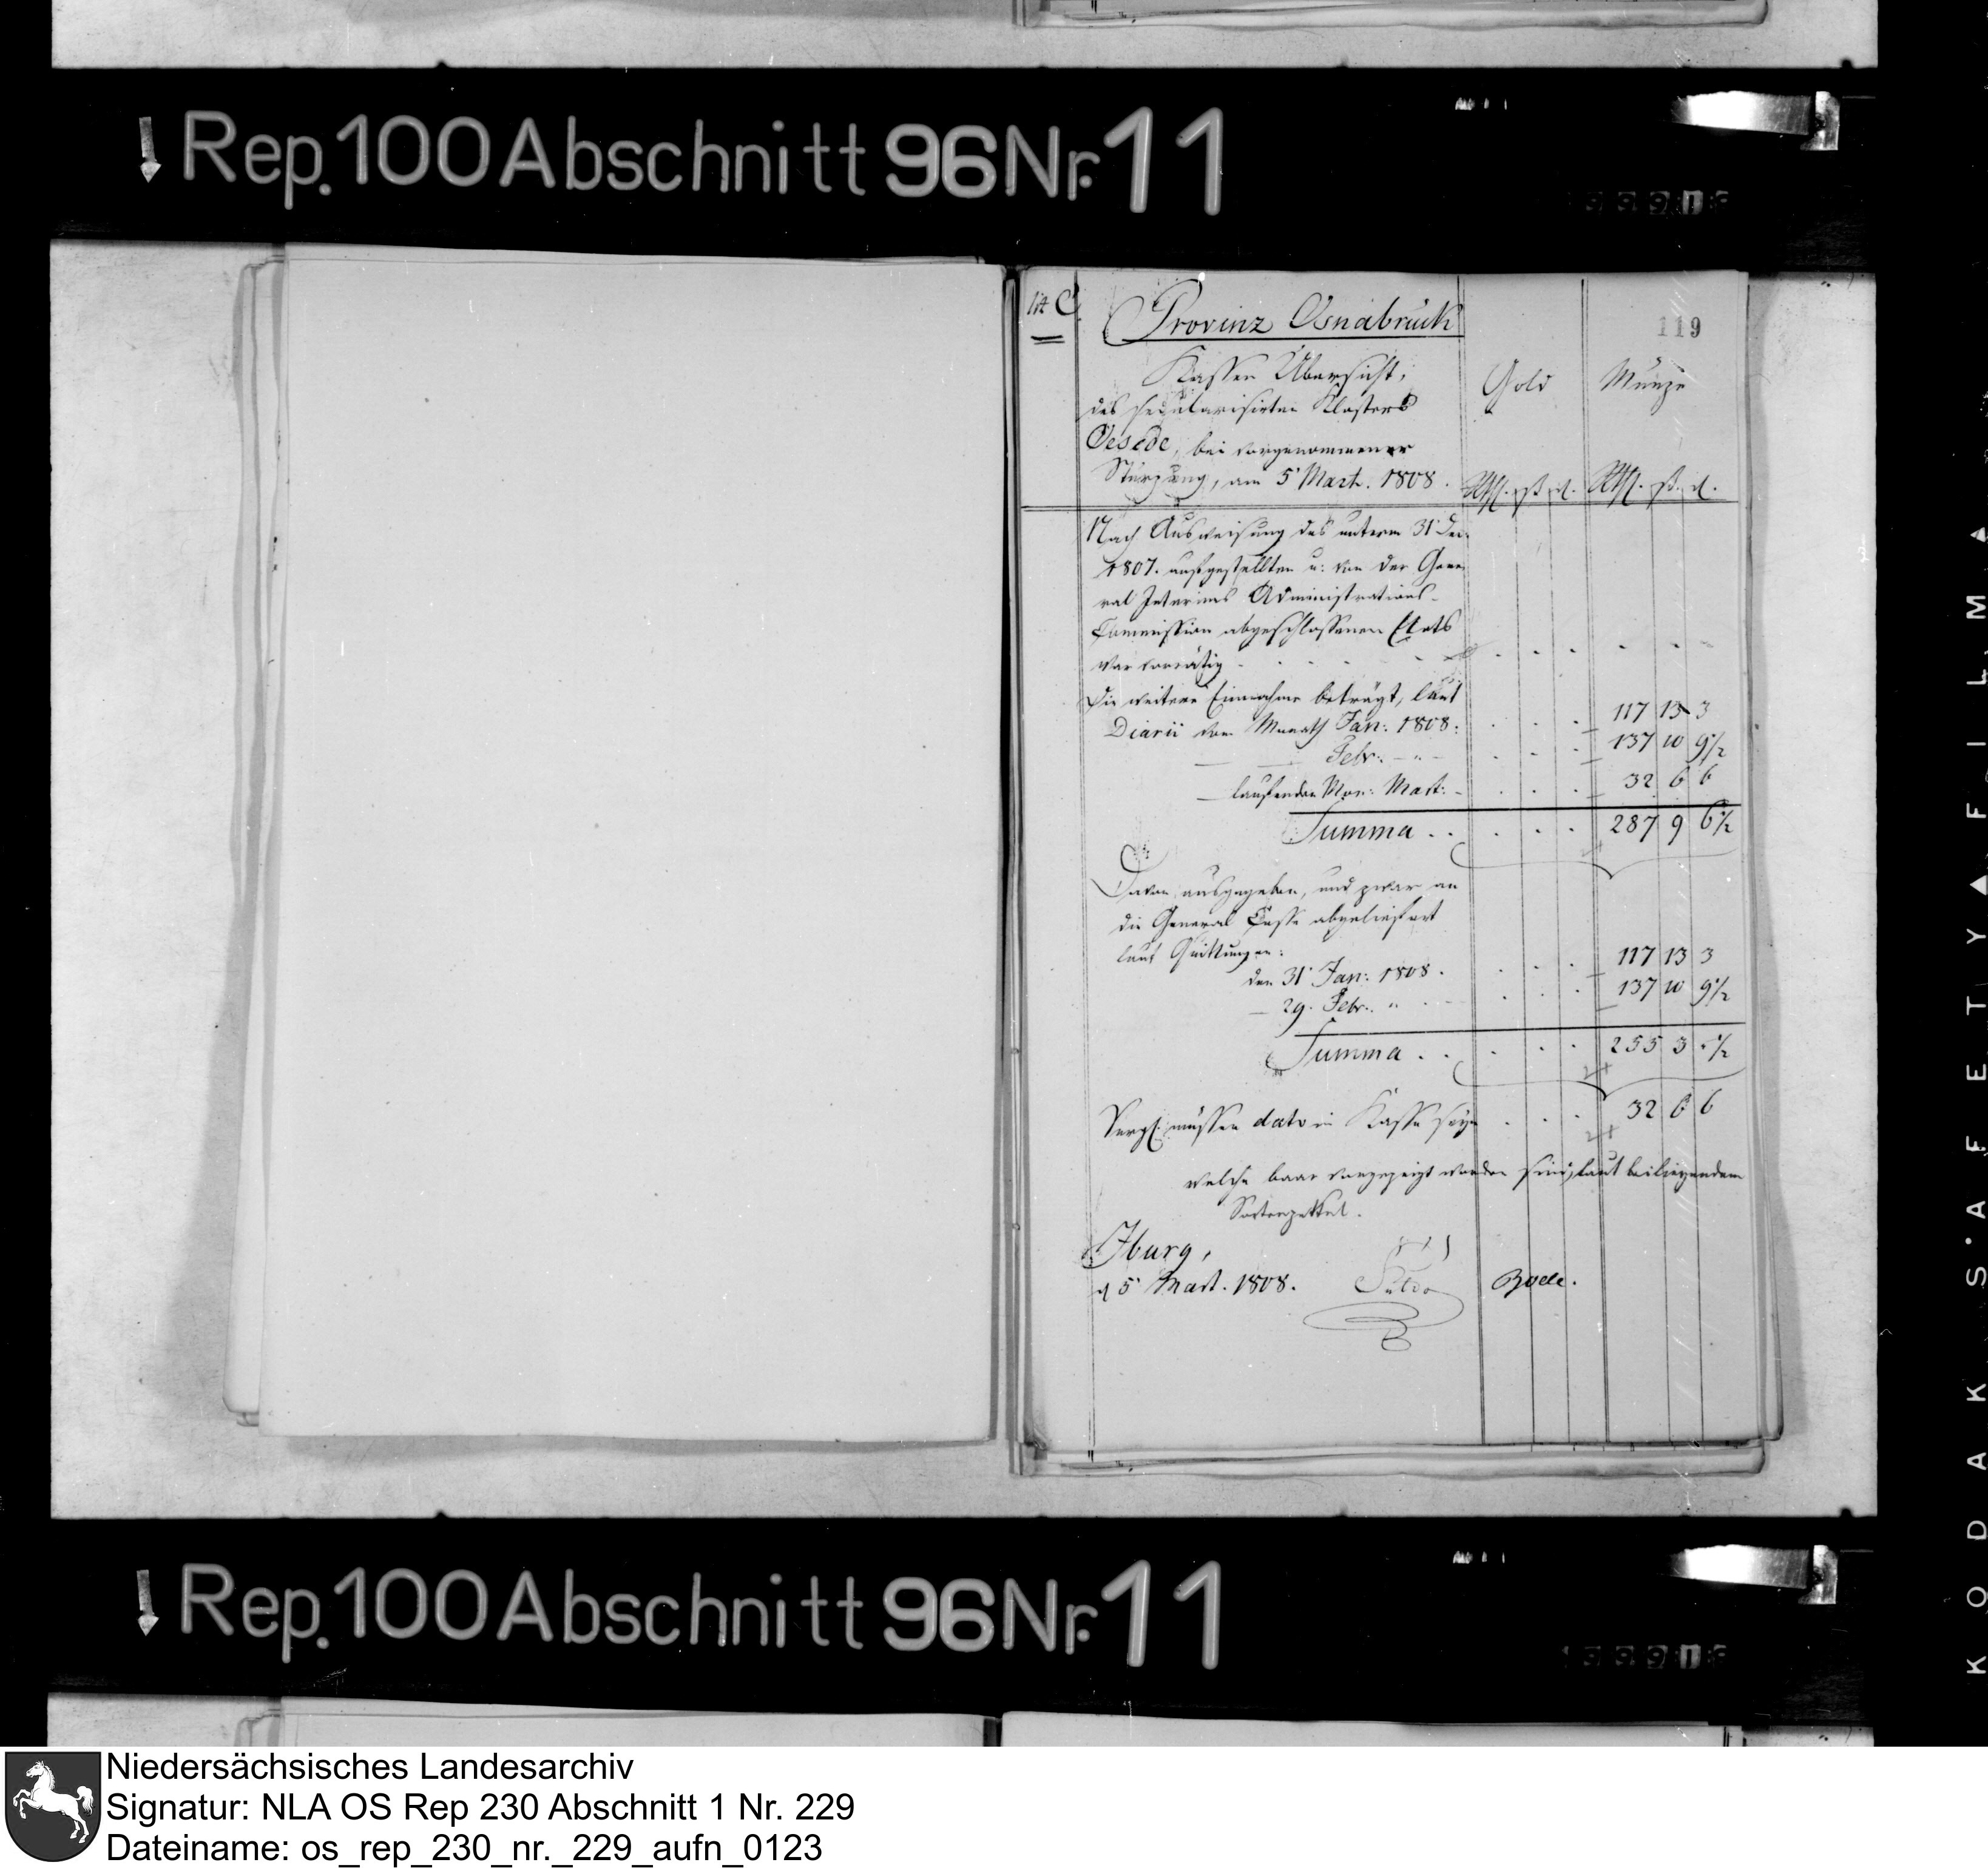 Rep. 100 Abschnitt 96 Nr. 11
lit C.
119
Provinz Osnabrück
Kassen Übersicht,
des secularisirten Klosters
Oesede, bei vorgenommener
Stürzung, am 5' Mart. 1808.
Gold Münze
Rthl. ß. d. Rthl. ß. d.
Nach Ausweisung des unterm 31' Dec.
1807. aufgestellten u: von der Gene-
ral Interims Administrations-
Commission abgeschlossenen Etats
war vorrätig
Die weitere Einnahme beträgt, laut
Diarii vom Monath Jan: 1808: 117 13 3
— — Febr: — " — 137 10 9½
— laufenden Mon: Mart: 32 6 6
Summa .. 287 9 6½
Davon ausgegeben, und zwar an
die General Casse abgeliefert
laut Quittungen:
den 31' Jan: 1808. 117 13 3
— 29. Febr: " 137 10 9½
Summa .. 255 3 . ½
müssen dato in Kasse seyn 32 6 6
welche baar vorgezeigt worden sind, laut beiliegendem
Sortenzettul.
Iburg,
d 5' Mart. 1808.
Rep. 100 Abschnitt 96 Nr. 11
KODAK SAFETY FILM
Niedersächsisches Landesarchiv
Signatur: NLA OS Rep 230 Abschnitt 1 Nr. 229
Dateiname: os_rep_230_nr._229_aufn_0123